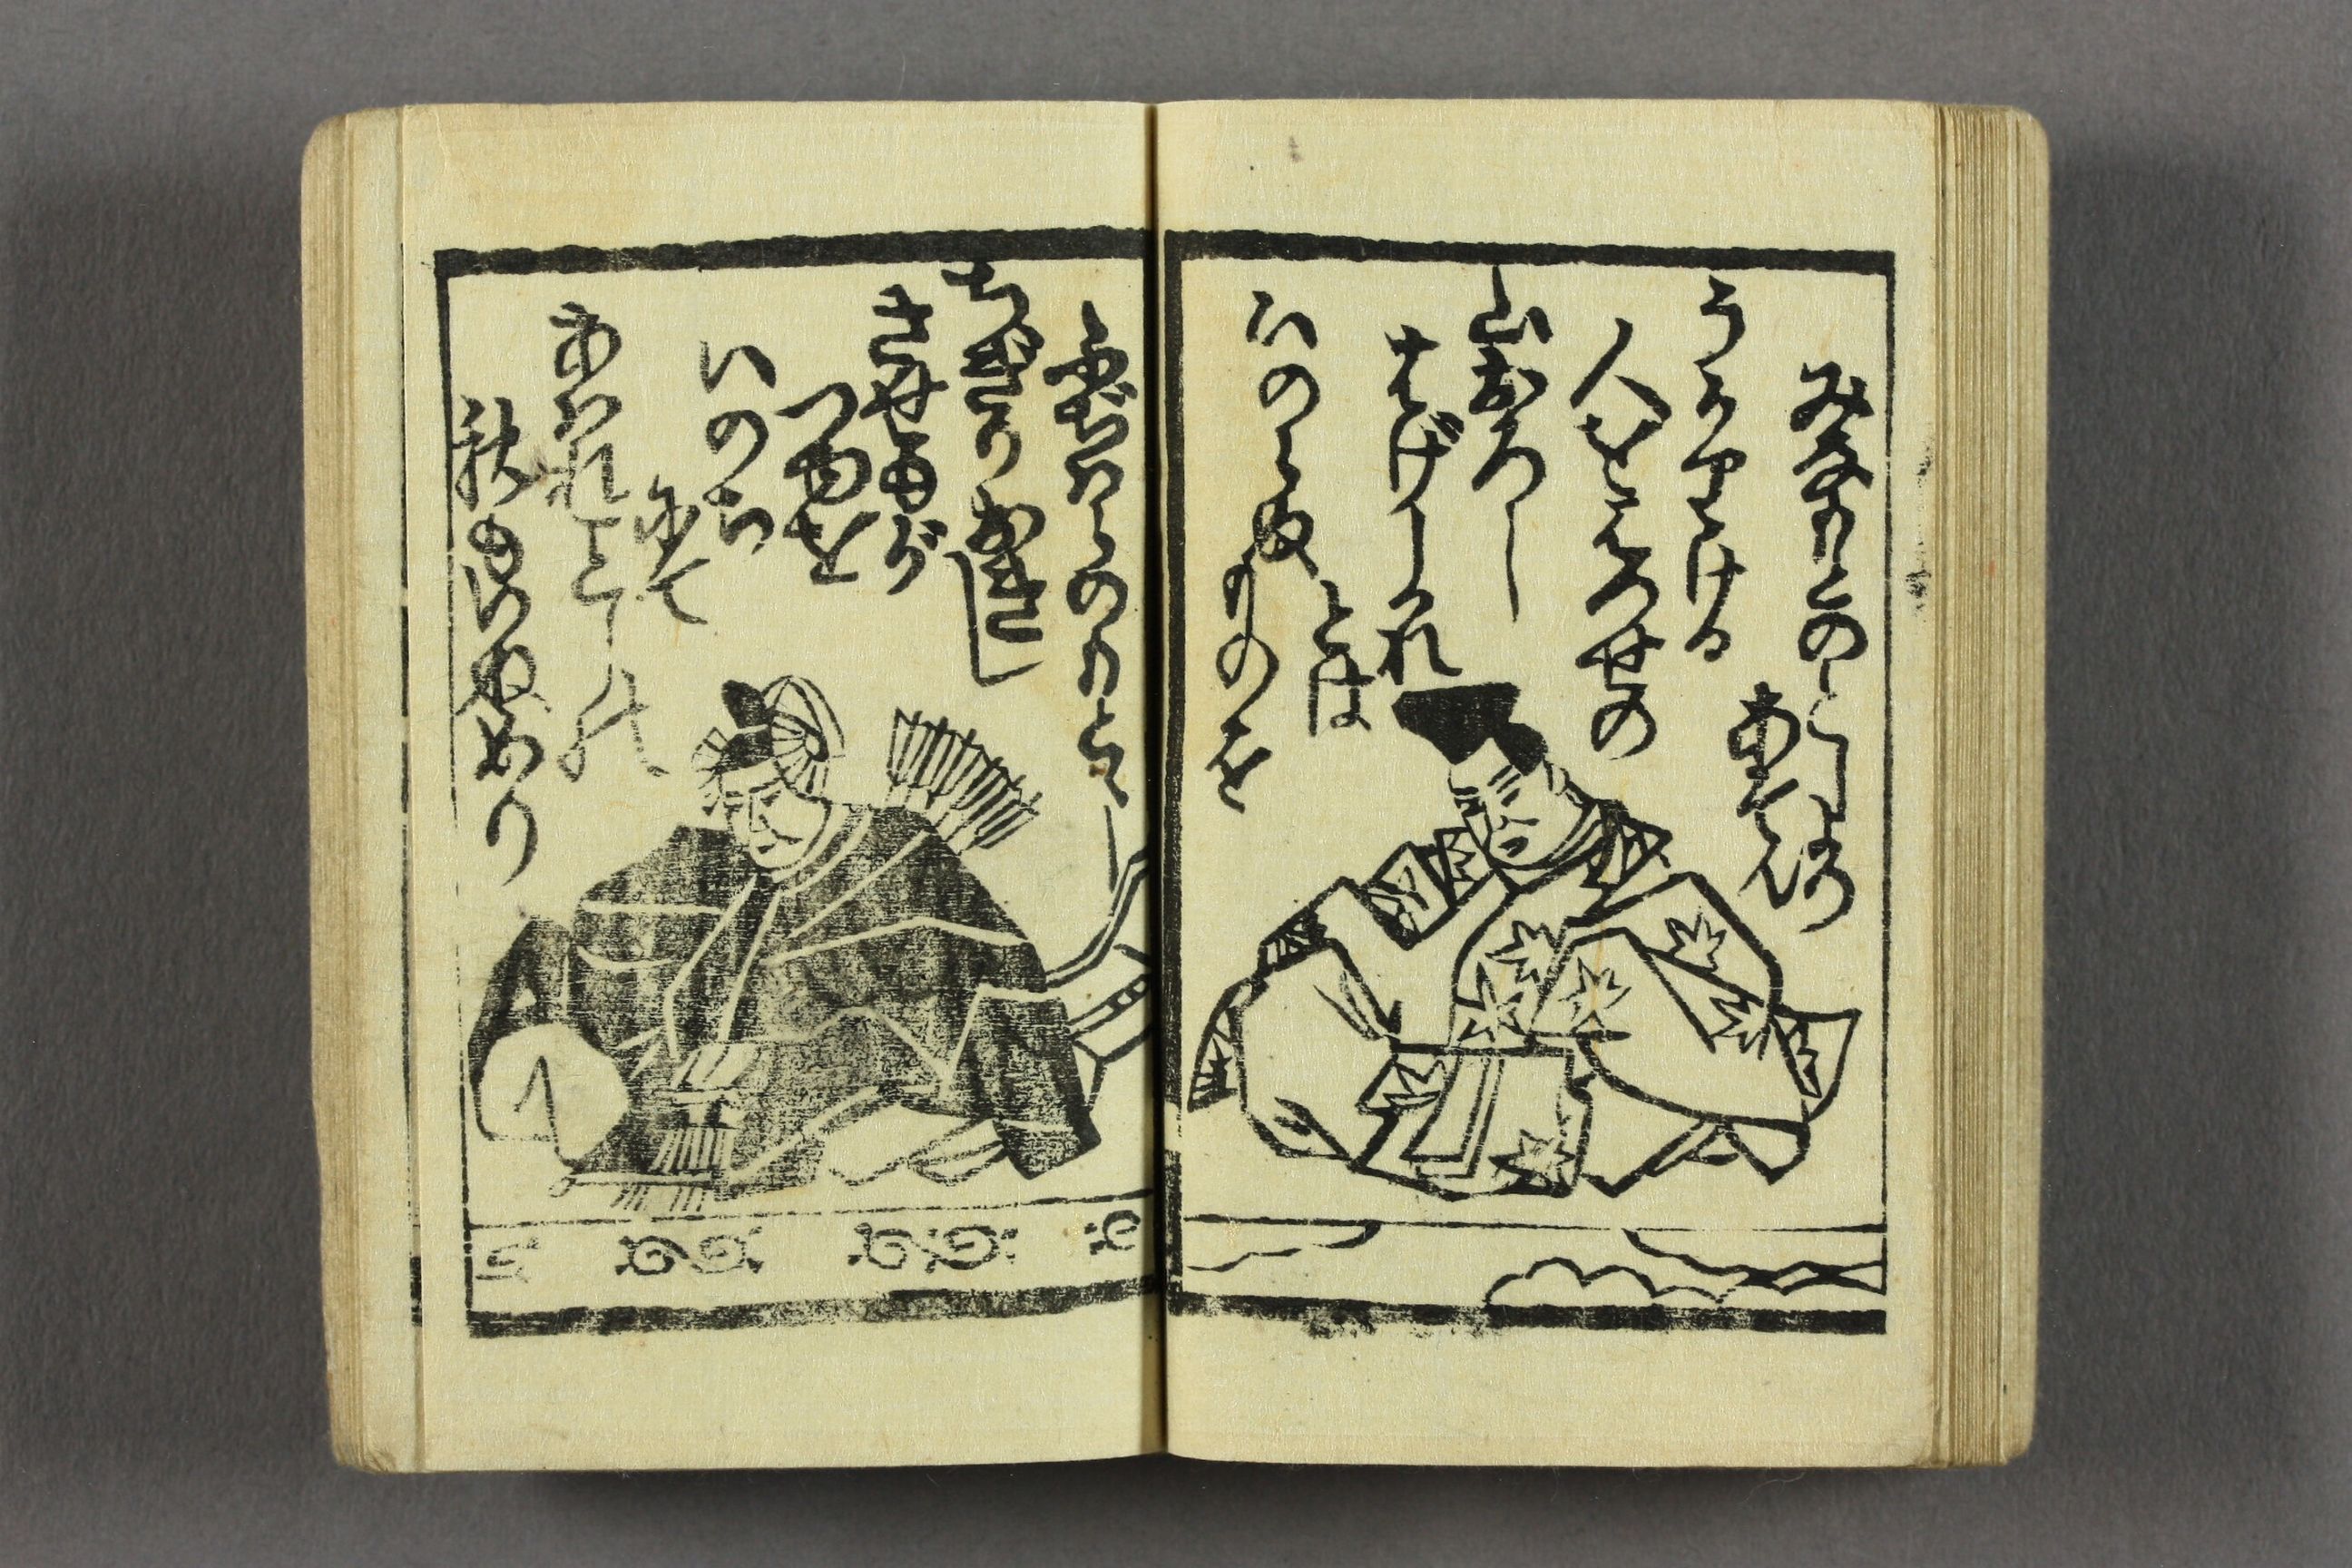 みなもとのとしより
あそん
うかりける
人をはつせの
山おろし
はげしかれ
とは
いのらぬものを
ふぢはらのもととし
ちぎりおきし
させもが
つゆを
いのち
にて
あわれことしの
秋もいぬめり